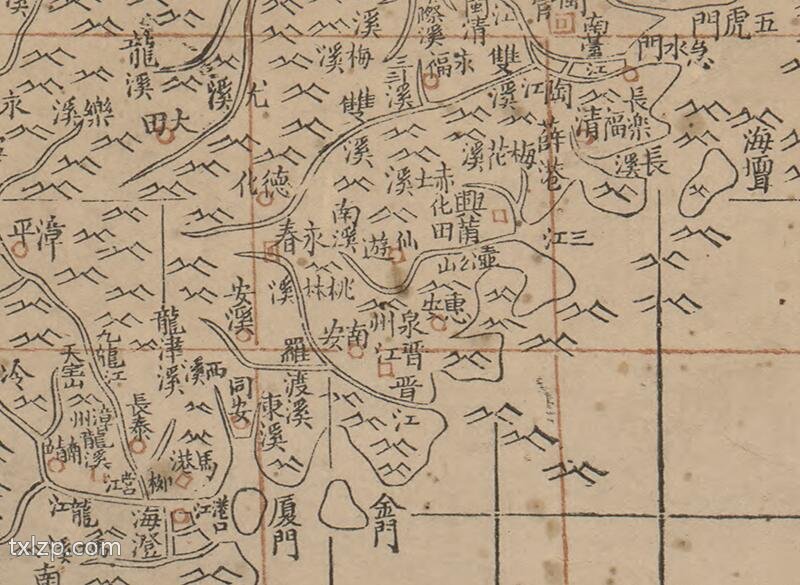 龍溪
溪梅溪
際溪
閩清
江
南臺江
門虎五
門水急
三溪
永福
雙溪
江
尤溪
永
樂溪
大田
雙溪
陶
薛港
福清
長樂
長溪
海壇
梅花溪
士溪
赤化田
興莆
德化
南溪
永春
仙遊
壺公山
三江
漳平
安溪
桃林溪
惠安
泉州
晉江
晉江
南安
龍津溪
九龍江
西溪
羅渡溪
同安
東溪
天宝山
冷
漳州
龍溪
長泰
南靖
馬港
柳營江
龍江
海澄
港口江
厦門
金門
溪南
txlzp.com